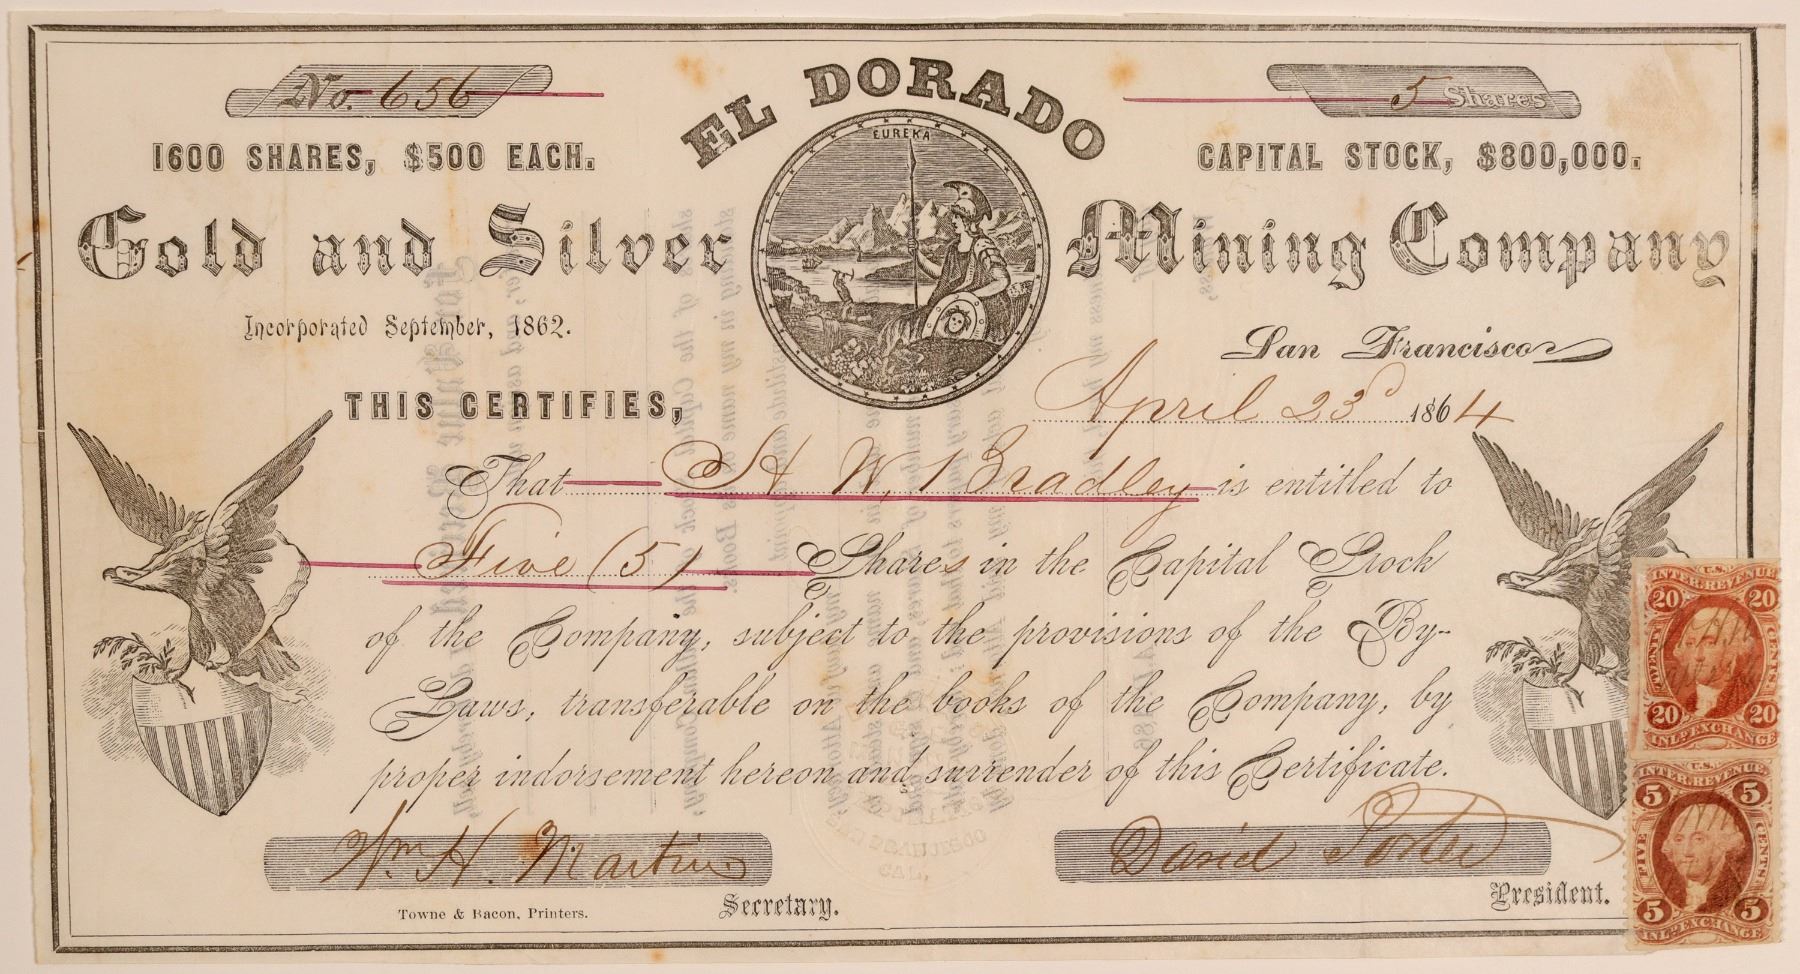 No. 656
5 Shares
EL DORADO
EUREKA
1600 SHARES, $500 EACH.
CAPITAL STOCK, $800,000.
Gold and Silver Mining Company
Incorporated September, 1862.
San Francisco
April 23d 1864
THIS CERTIFIES,
That H W. Bradley is entitled to
Five (5) Shares in the Capital Stock
of the Company, subject to the provisions of the By-
Laws, transferable on the books of the Company, by
proper indorsement hereon and surrender of this Certificate.
Wm H. Martin
Secretary.
David Porter
President.
Towne & Bacon, Printers.
U.S.
INTER.REVENUE
20 20
TWENTY CENTS
20 20
INL. EXCHANGE
U.S.
INTER.REVENUE
5 5
FIVE CENTS
5 5
INL. EXCHANGE
SAN FRANCISCO
CAL.